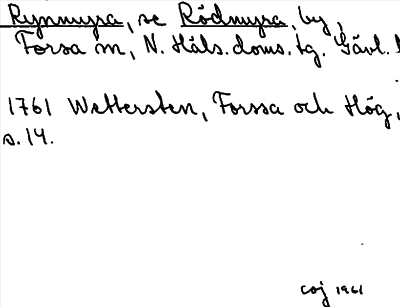 Rynnmyra, se Rödmyra, by,
Forsa sn, N. Häls. doms. tg. Gävl. l
1761 Wettersten, Forssa och Hög,
s. 14.
coj 1961